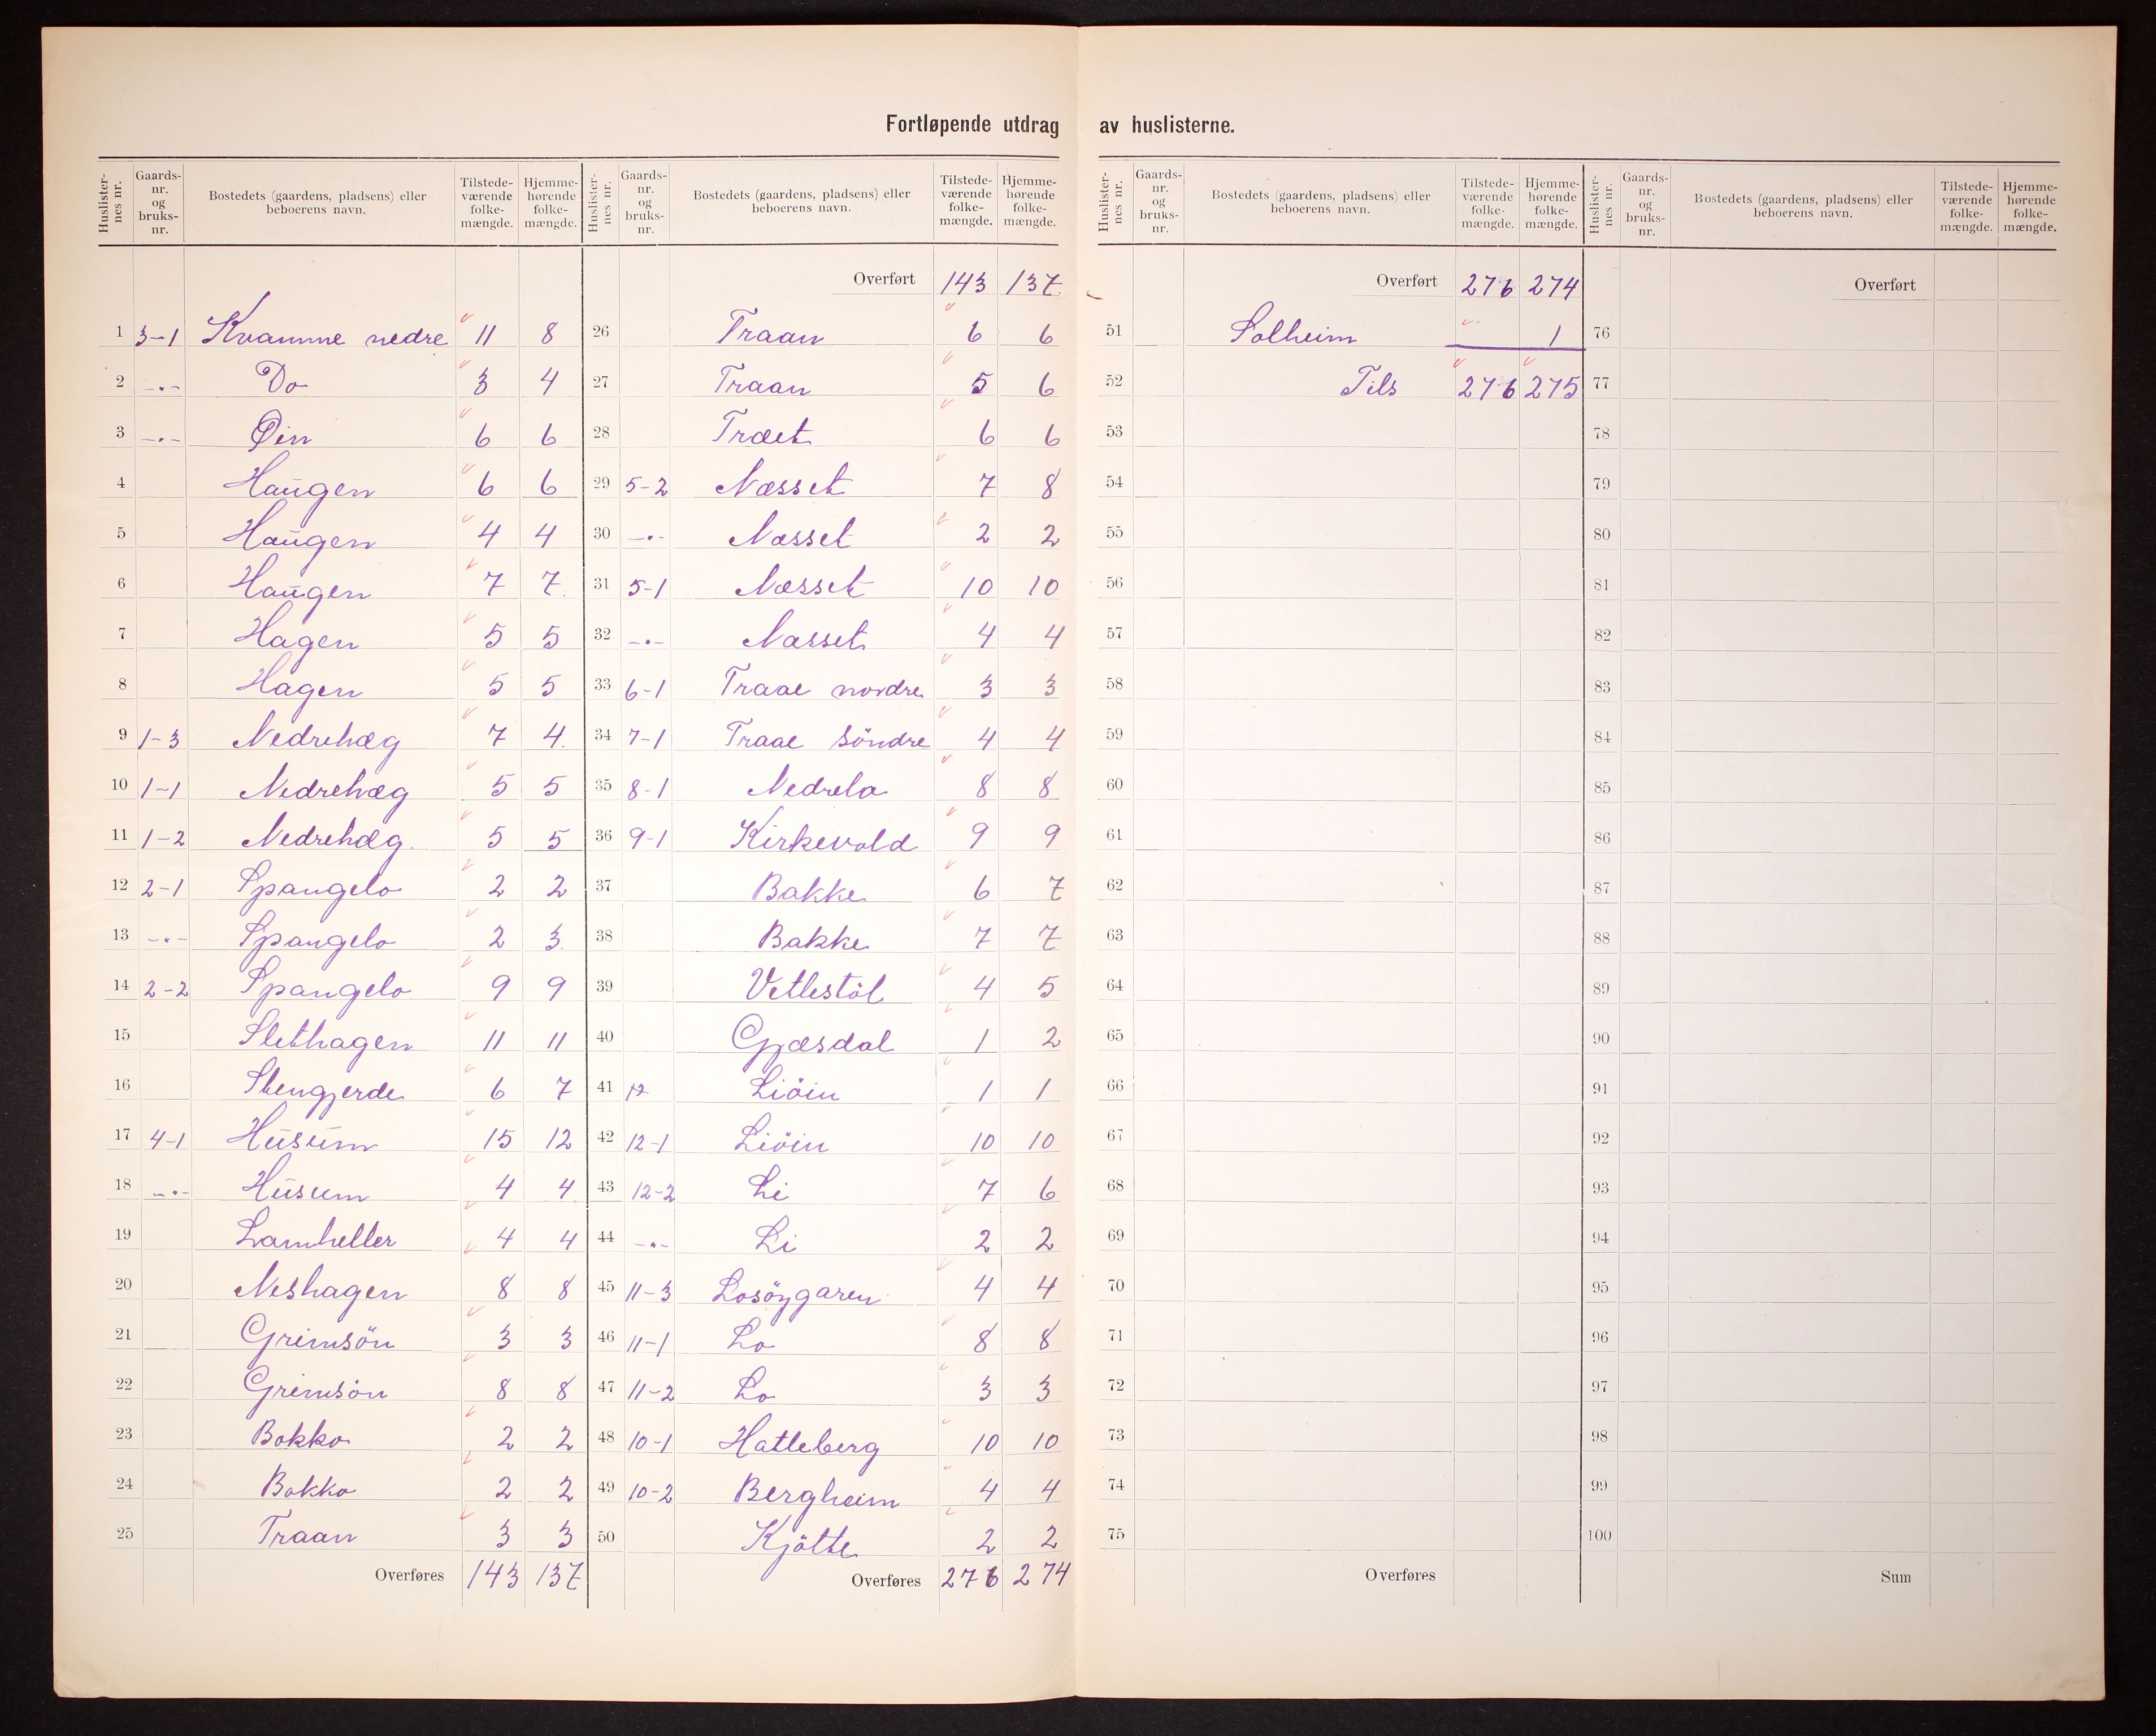 Fortløpende utdrag av huslisterne.
Huslister-nes nr. Gaards-nr. og bruks-nr. Bostedets (gaardens, pladsens) eller beboerens navn. Tilstede-værende folke-mængde. Hjemme-hørende folke-mængde.
1 3-1 Kvamme nedre 11 8
2 -"- Do 3 4
3 -"- Øin 6 6
4 Haugen 6 6
5 Haugen 4 4
6 Haugen 7 7
7 Hagen 5 5
8 Hagen 5 5
9 1-3 Nedrehæg 7 4
10 1-1 Nedrehæg 5 5
11 1-2 Nedrehæg 5 5
12 2-1 Spangelo 2 2
13 -"- Spangelo 2 3
14 2-2 Spangelo 9 9
15 Slethagen 11 11
16 Stengjerde 6 7
17 4-1 Husum 15 12
18 -"- Husum 4 4
19 Lamheller 4 4
20 Neshagen 8 8
21 Grimsön 3 3
22 Grimsön 8 8
23 Bokko 2 2
24 Bokko 2 2
25 Traan 3 3
Overføres 143 137
Huslister-nes nr. Gaards-nr. og bruks-nr. Bostedets (gaardens, pladsens) eller beboerens navn. Tilstede-værende folke-mængde. Hjemme-hørende folke-mængde.
Overført 143 137
26 Traan 6 6
27 Traan 5 6
28 Træet 6 6
29 5-2 Næsset 7 8
30 -"- Næsset 2 2
31 5-1 Næsset 10 10
32 -"- Næsset 4 4
33 6-1 Traae nordre 3 3
34 7-1 Traae söndre 4 4
35 8-1 Nedrela 8 8
36 9-1 Kirkevold 9 9
37 Bakke 6 7
38 Bakke 7 7
39 Vetlestöl 4 5
40 Gjæsdal 1 2
41 12 Liöin 1 1
42 12-1 Liöin 10 10
43 12-2 Li 7 6
44 -"- Li 2 2
45 11-3 Losöygaren 4 4
46 11-1 Lo 8 8
47 11-2 Lo 3 3
48 10-1 Hatleberg 10 10
49 10-2 Bergheim 4 4
50 Kjötte 2 2
Overføres 276 274
Huslister-nes nr. Gaards-nr. og bruks-nr. Bostedets (gaardens, pladsens) eller beboerens navn. Tilstede-værende folke-mængde. Hjemme-hørende folke-mængde.
Overført 276 274
51 Solheim 1
52 Tils 276 275
53
54
55
56
57
58
59
60
61
62
63
64
65
66
67
68
69
70
71
72
73
74
75
Overføres
Huslister-nes nr. Gaards-nr. og bruks-nr. Bostedets (gaardens, pladsens) eller beboerens navn. Tilstede-værende folke-mængde. Hjemme-hørende folke-mængde.
Overført
76
77
78
79
80
81
82
83
84
85
86
87
88
89
90
91
92
93
94
95
96
97
98
99
100
Sum